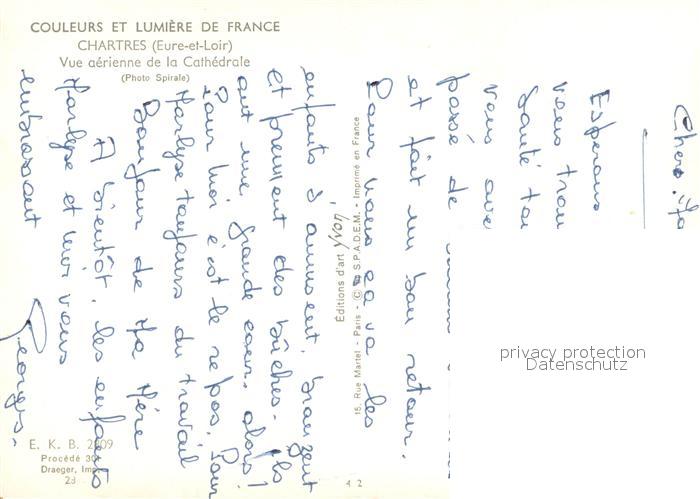 COULEURS ET LUMIÈRE DE FRANCE
CHARTRES (Eure-et-Loir)
Vue aérienne de la Cathédrale
(Photo Spirale)
Chers
Espérons
vous trou
santé
vous ave
passé de
et fait un bon retour.
Pour nous ça va les
enfants s'amusent, 
et prennent des bûches. Ils
ont une grande cour, alors!
Pour moi c'est le repos. Pour
toujours du travail
Bonjour de Ma Mère
A bientôt, les enfants
et moi vous
embrassent
Georges.
Editions d'art Yvon
15, Rue Martel - Paris - © S.P.A.D.E.M. - Imprimé en France
privacy protection
Datenschutz
E. K. B. 2909
Procédé 30
Draeger, Imp.
28
4 2